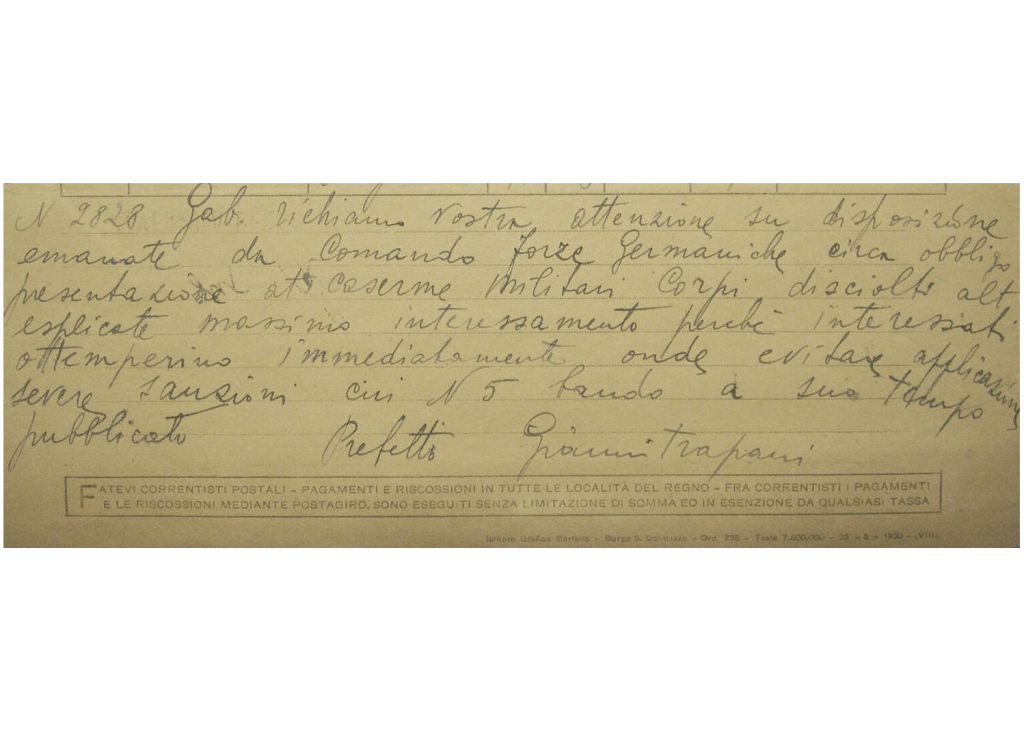 N 2828 Gab. richiamo Vostra attenzione su disposizione
emanate da Comando forze Germaniche circa obbligo
presentazione at caserme Militari Corpi disciolti alt
esplicate massimo interessamento perchè interessati
ottemperino immediatamente onde evitare applicazione
severe sanzioni cui N 5 bando a suo tempo
pubblicato Prefetto Gianni Trapani
FATEVI CORRENTISTI POSTALI - PAGAMENTI E RISCOSSIONI IN TUTTE LE LOCALITÀ DEL REGNO - FRA CORRENTISTI I PAGAMENTI
E LE RISCOSSIONI MEDIANTE POSTAGIRO, SONO ESEGUITI SENZA LIMITAZIONE DI SOMMA ED IN ESENZIONE DA QUALSIASI TASSA
Istituto Grafico Bertello - Borgo S. Dalmazzo - Ord. 735 - Tasle 7.800,000 - - 1930 - (VIII).